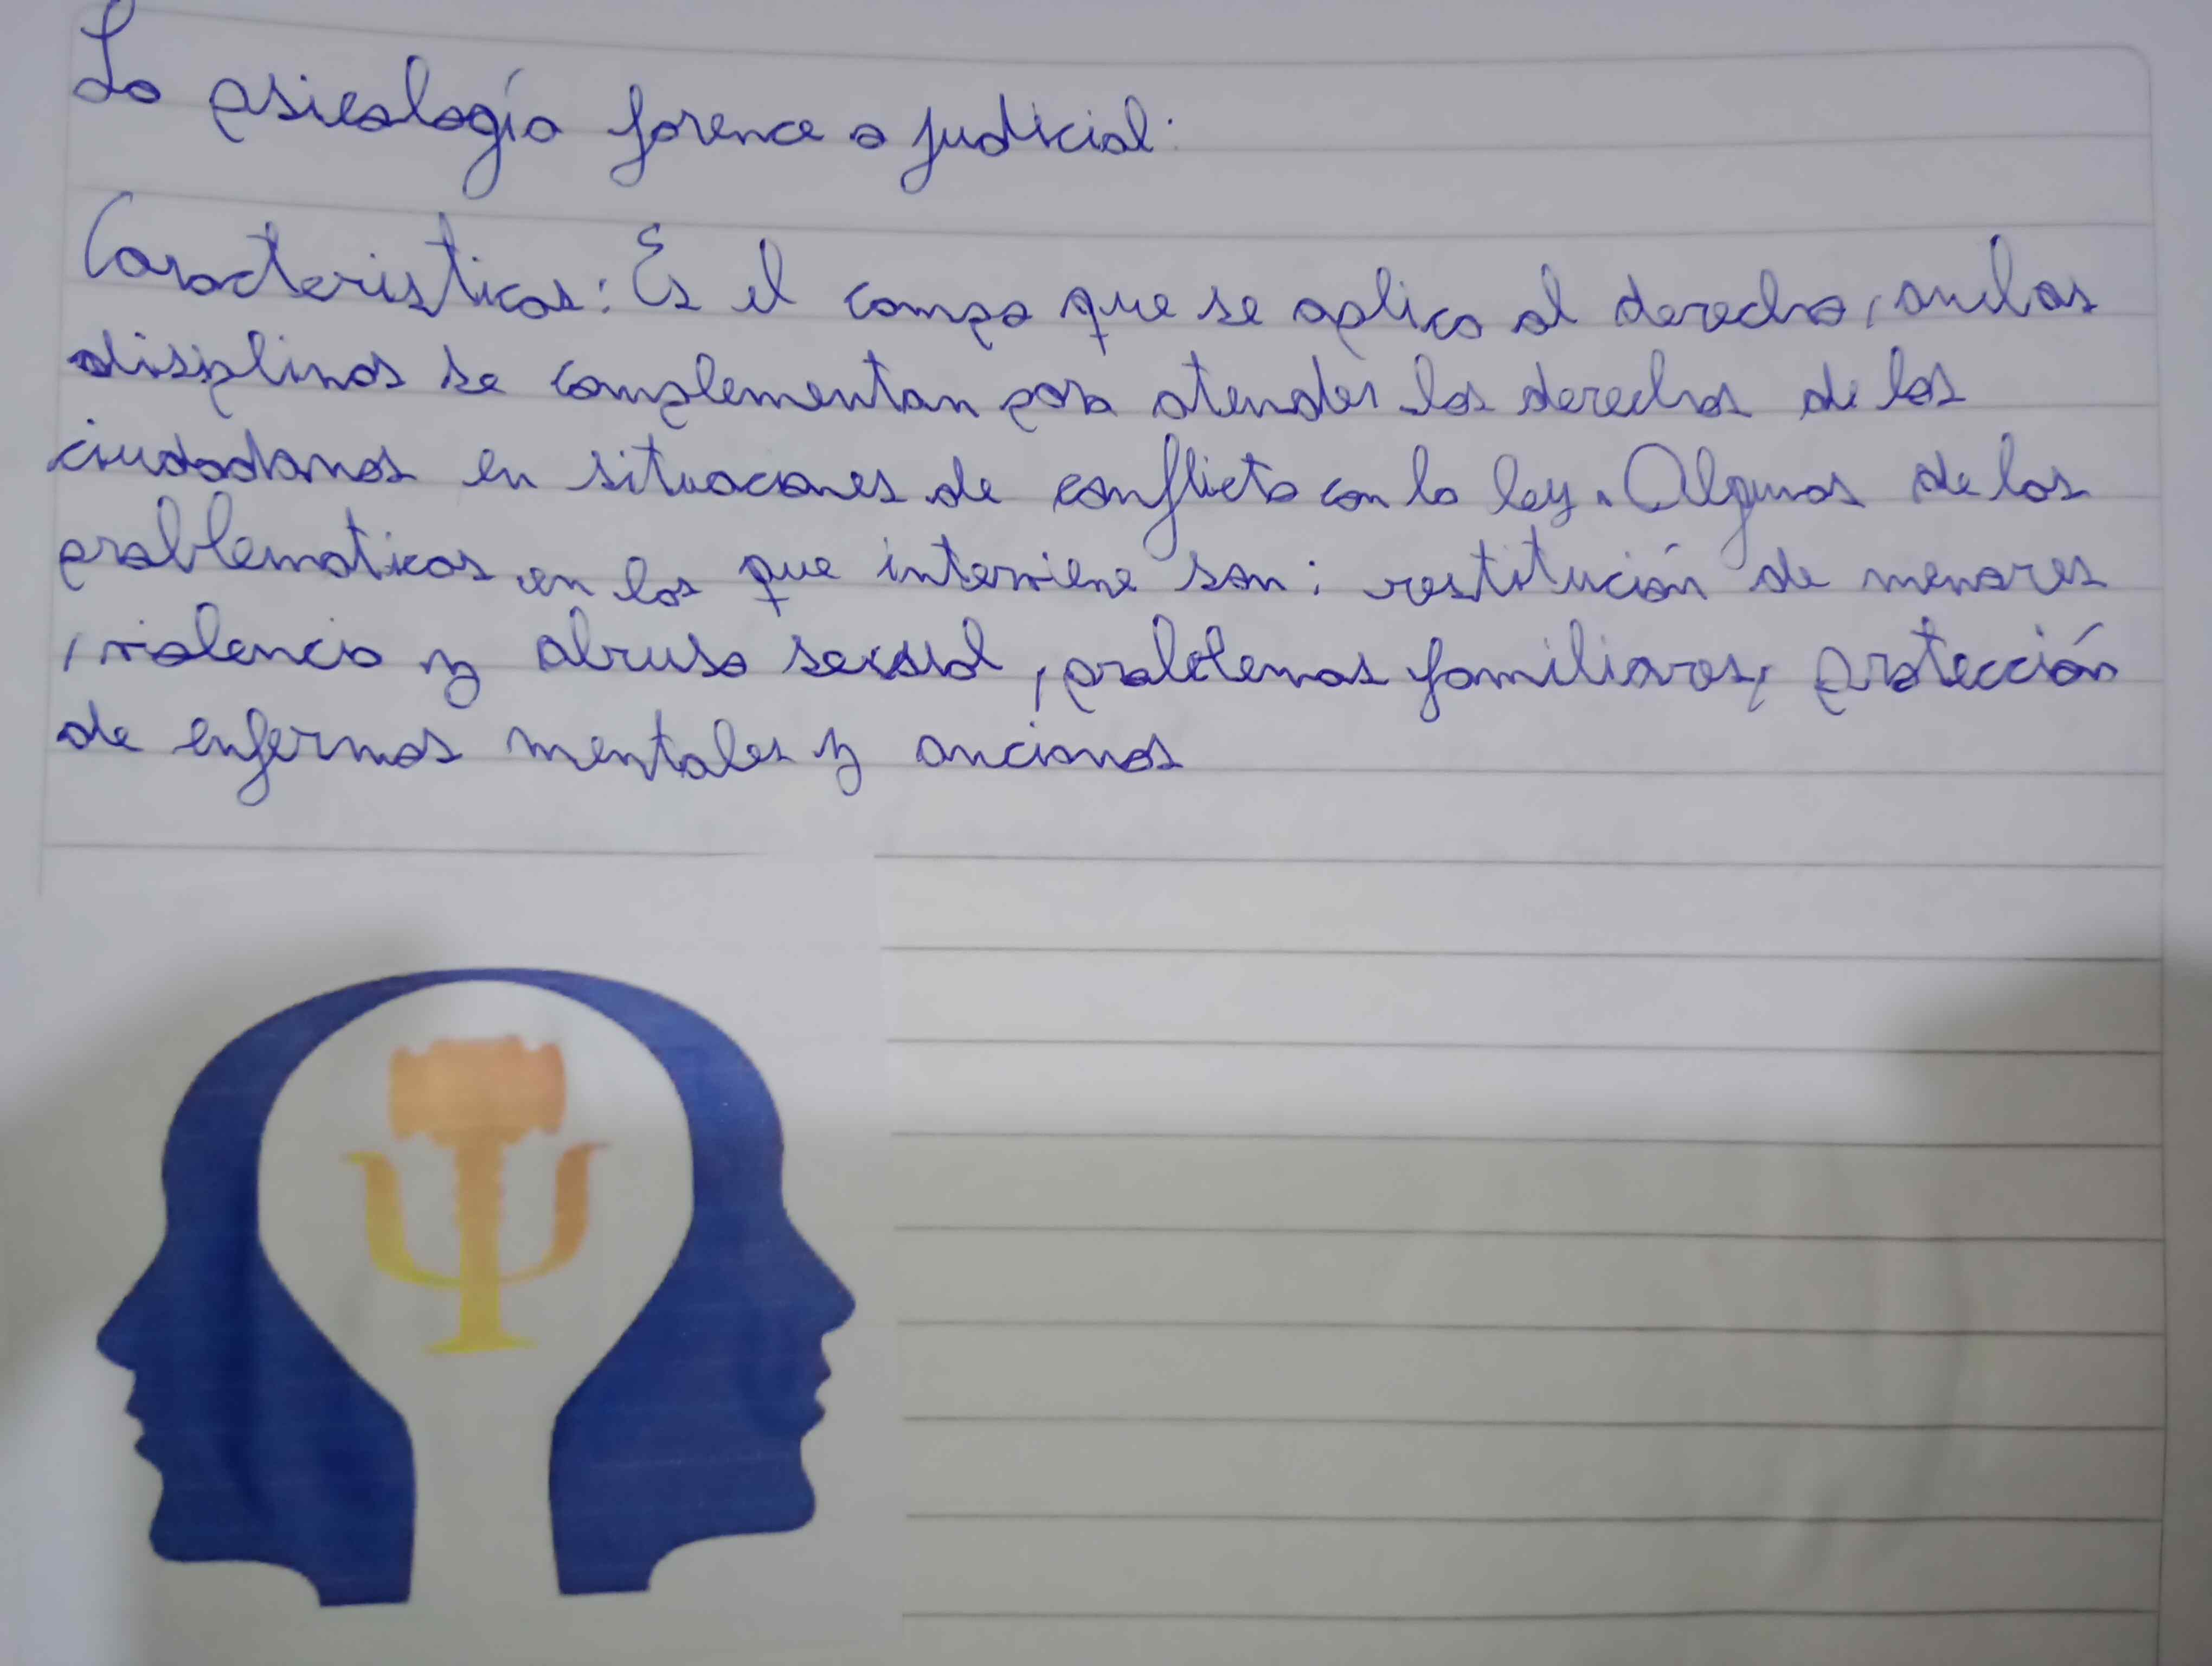 La psicología forence o judicial:
Caracteristicas: Es el campo que se aplica al derecho, ambas
disiplinas se complementan para atender los derechos de los
ciudadanos en situaciones de conflicto con la ley. Algunas de las
problematicas en las que interviene son: restitución de menores
, violencia y abuso sexual, problemas familiares, protección
de enfermos mentales y ancianos
Ψ